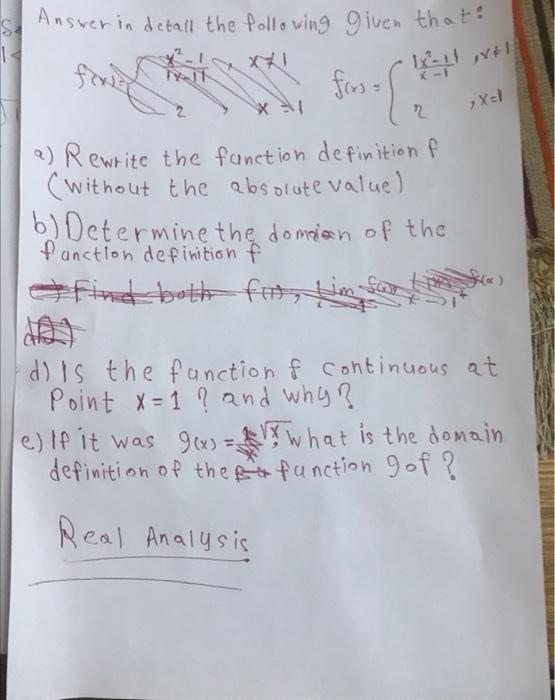 Answer in detail the following given that:
f(x) = x²-1 / |x-1| , x≠1
2 , x=1
f(x) = { |x²-1| / x-1 , x≠1
2 , x=1
a) Rewrite the function definition f
(without the absolute value)
b) Determine the domain of the
function definition f
c) Find both f(1), Lim f(x),
d) Is the function f continuous at
Point x=1? and why?
e) If it was g(x) = √x, what is the domain
definition of the function gof?
Real Analysis